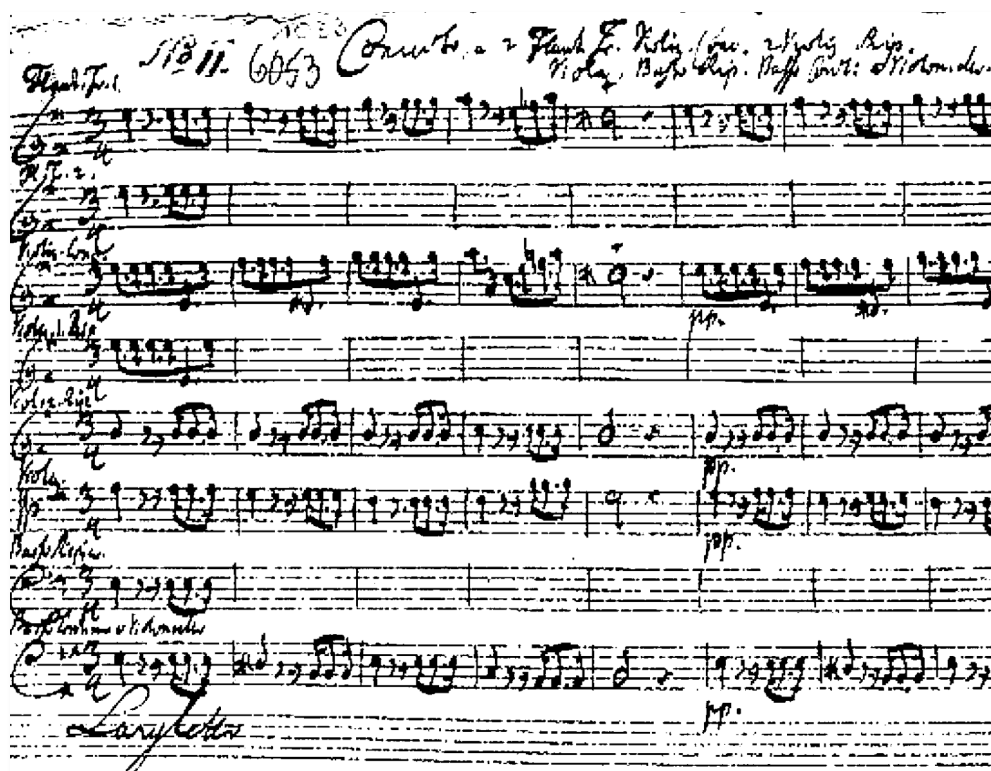 No II. 6053 Concerto, a 2 Flaut. Tr. Violin Conc. 2 Violin Rip.
Viola, Basso Rip. Basso Conti: e Violoncello.
Flaut. Tr. 1.
Fl. Tr. 2.
Violin. Conc.
Violin. 1. Rip.
Violin 2. Rip.
pp.
Viola
pp.
pp.
Basso Ripien.
Basso Continuo e Violoncello
pp.
Larghetto